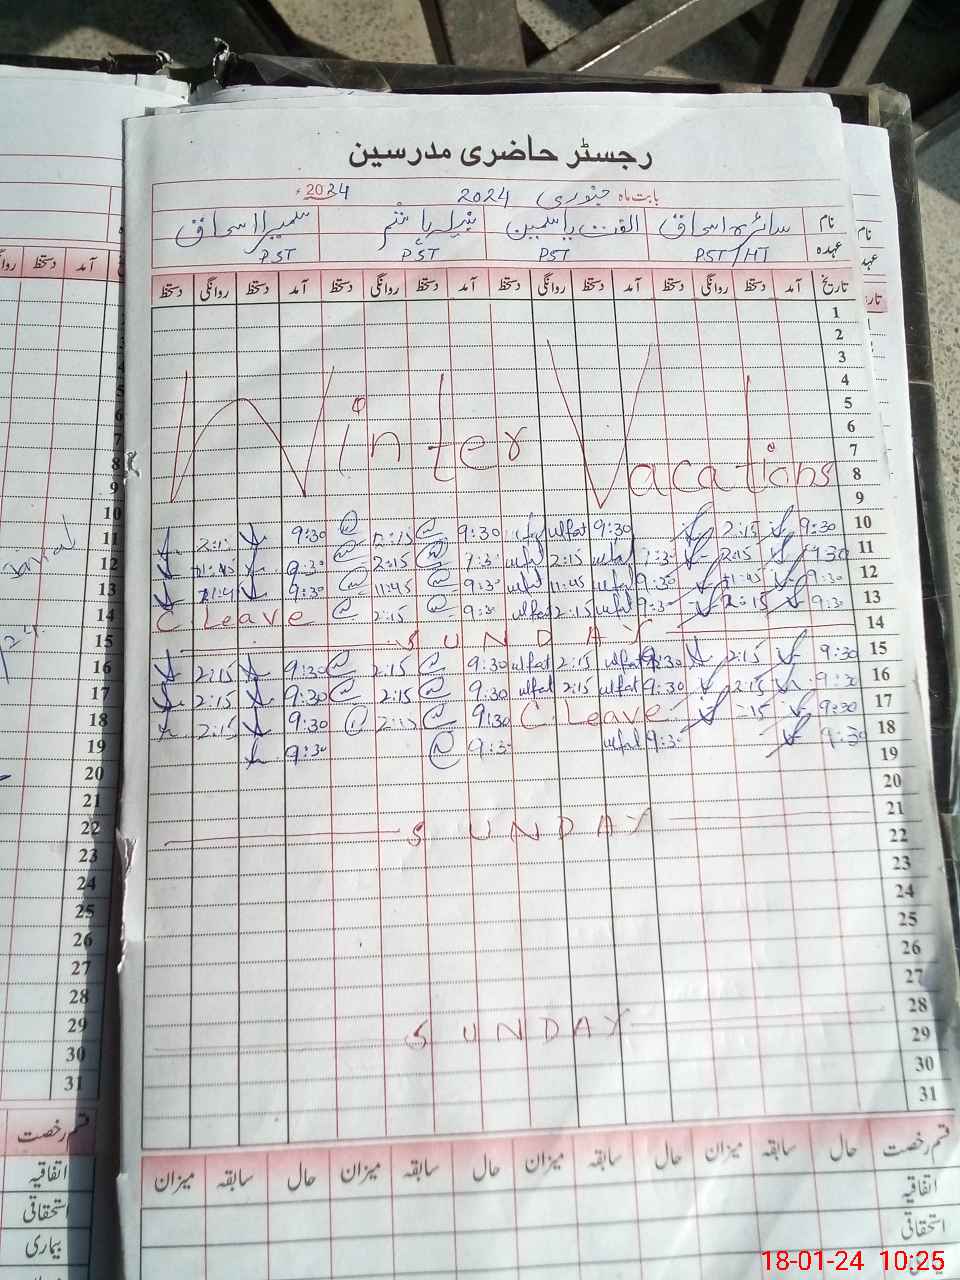 رجسٹر حاضری مدرسین
بابت ماہ جنوری 2024 2024ء
نام سائرہ اسحاق الفت یاسمین سمیرا اسحاق
عہدہ PST/HT PST PST PST
تاریخ آمد دستخط روانگی دستخط آمد دستخط روانگی دستخط آمد دستخط روانگی دستخط آمد دستخط روانگی دستخط
1
2
3
4
5
6
7
8
9
Winter Vacations
10 9:30 2:15 9:30 ulfat 9:30 2:15 9:30
11 9:30 2:15 ulfat 2:15 ulfat 2:15 9:30
12 9:30 11:45 9:30 ulfat 11:45 ulfat 9:30 11:45 9:30
13 9:30 2:15 9:30 ulfat 2:15 ulfat 9:30 2:15 C. Leave
14 SUNDAY
15 9:30 2:15 9:30 ulfat 2:15 ulfat 9:30 2:15 9:30 2:15
16 9:30 2:15 9:30 ulfat 2:15 ulfat 9:30 2:15 9:30 2:15
17 9:30 C. Leave 9:30 2:15 9:30 2:15
18 9:30 9:30 ulfat 9:30 9:30
19
20
21 SUNDAY
22
23
24
25
26
27
28 SUNDAY
29
30
31
قسم رخصت حال سابقہ میزان حال سابقہ میزان حال سابقہ میزان حال سابقہ میزان
اتفاقیہ
استحقاقی
آمد دستخط
10
11
12
13
14
15
16
17
18
19
20
21
22
23
24
25
26
27
28
29
30
31
قسم رخصت
اتفاقیہ
استحقاقی
بیماری
18-01-24 10:25